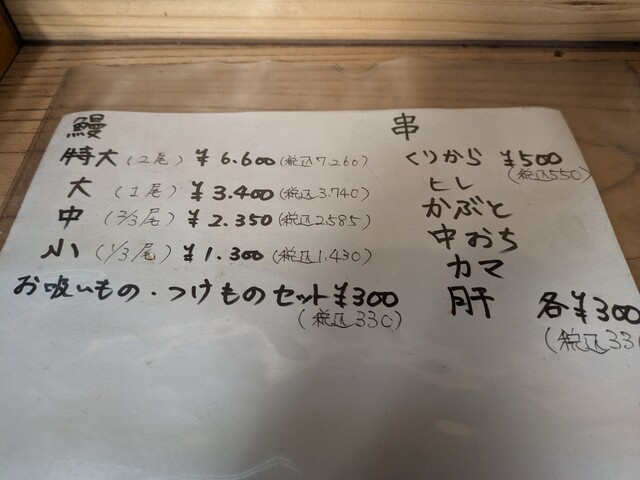 鰻
特大(2尾) ¥6.600(税込7.260)
大(1尾) ¥3.400(税込3.740)
中(2/3尾) ¥2.350(税込2.585)
小(1/3尾) ¥1.300(税込1.430)
お吸いもの・つけものセット¥300
(税込330)
串
くりから ¥500
(税込550)
ヒレ
かぶと
中おち
カマ
肝 各¥300
(税込33